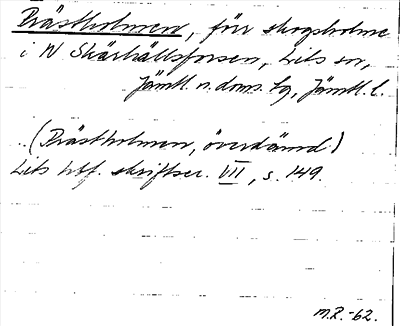 Prästholmen, förr skogsholme
i N Skärhällsforsen, Lits sn,
Jämtl. n. doms. tg, Jämtl. l.
(Prästholmen, överdämd)
Lits htf. skriftser. VII, s. 149.
M.R.-62.